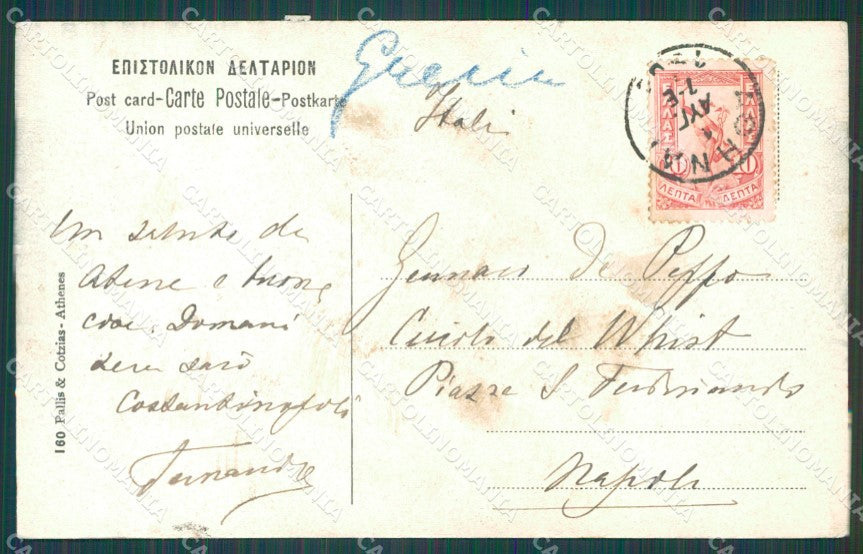 ΕΠΙΣΤΟΛΙΚΟΝ ΔΕΛΤΑΡΙΟΝ
Post card-Carte Postale-Postkarte
Union postale universelle
Grecia
Itali
ΕΛΛΑΣ ΕΛΛΑΣ
10 10
ΛΕΠΤΑ ΛΕΠΤΑ
ΑΘΗΝΑΙ
ΑΥΓ
Un saluto da
Atene e buone
cose. Domani
sera sarò
Costantinopoli
Fernando
160 Pallis & Cotzias - Athenes
Gennaro de Peppo
Circolo del Whist
Piazza S Ferdinando
Napoli
CARTOLINOMANIA